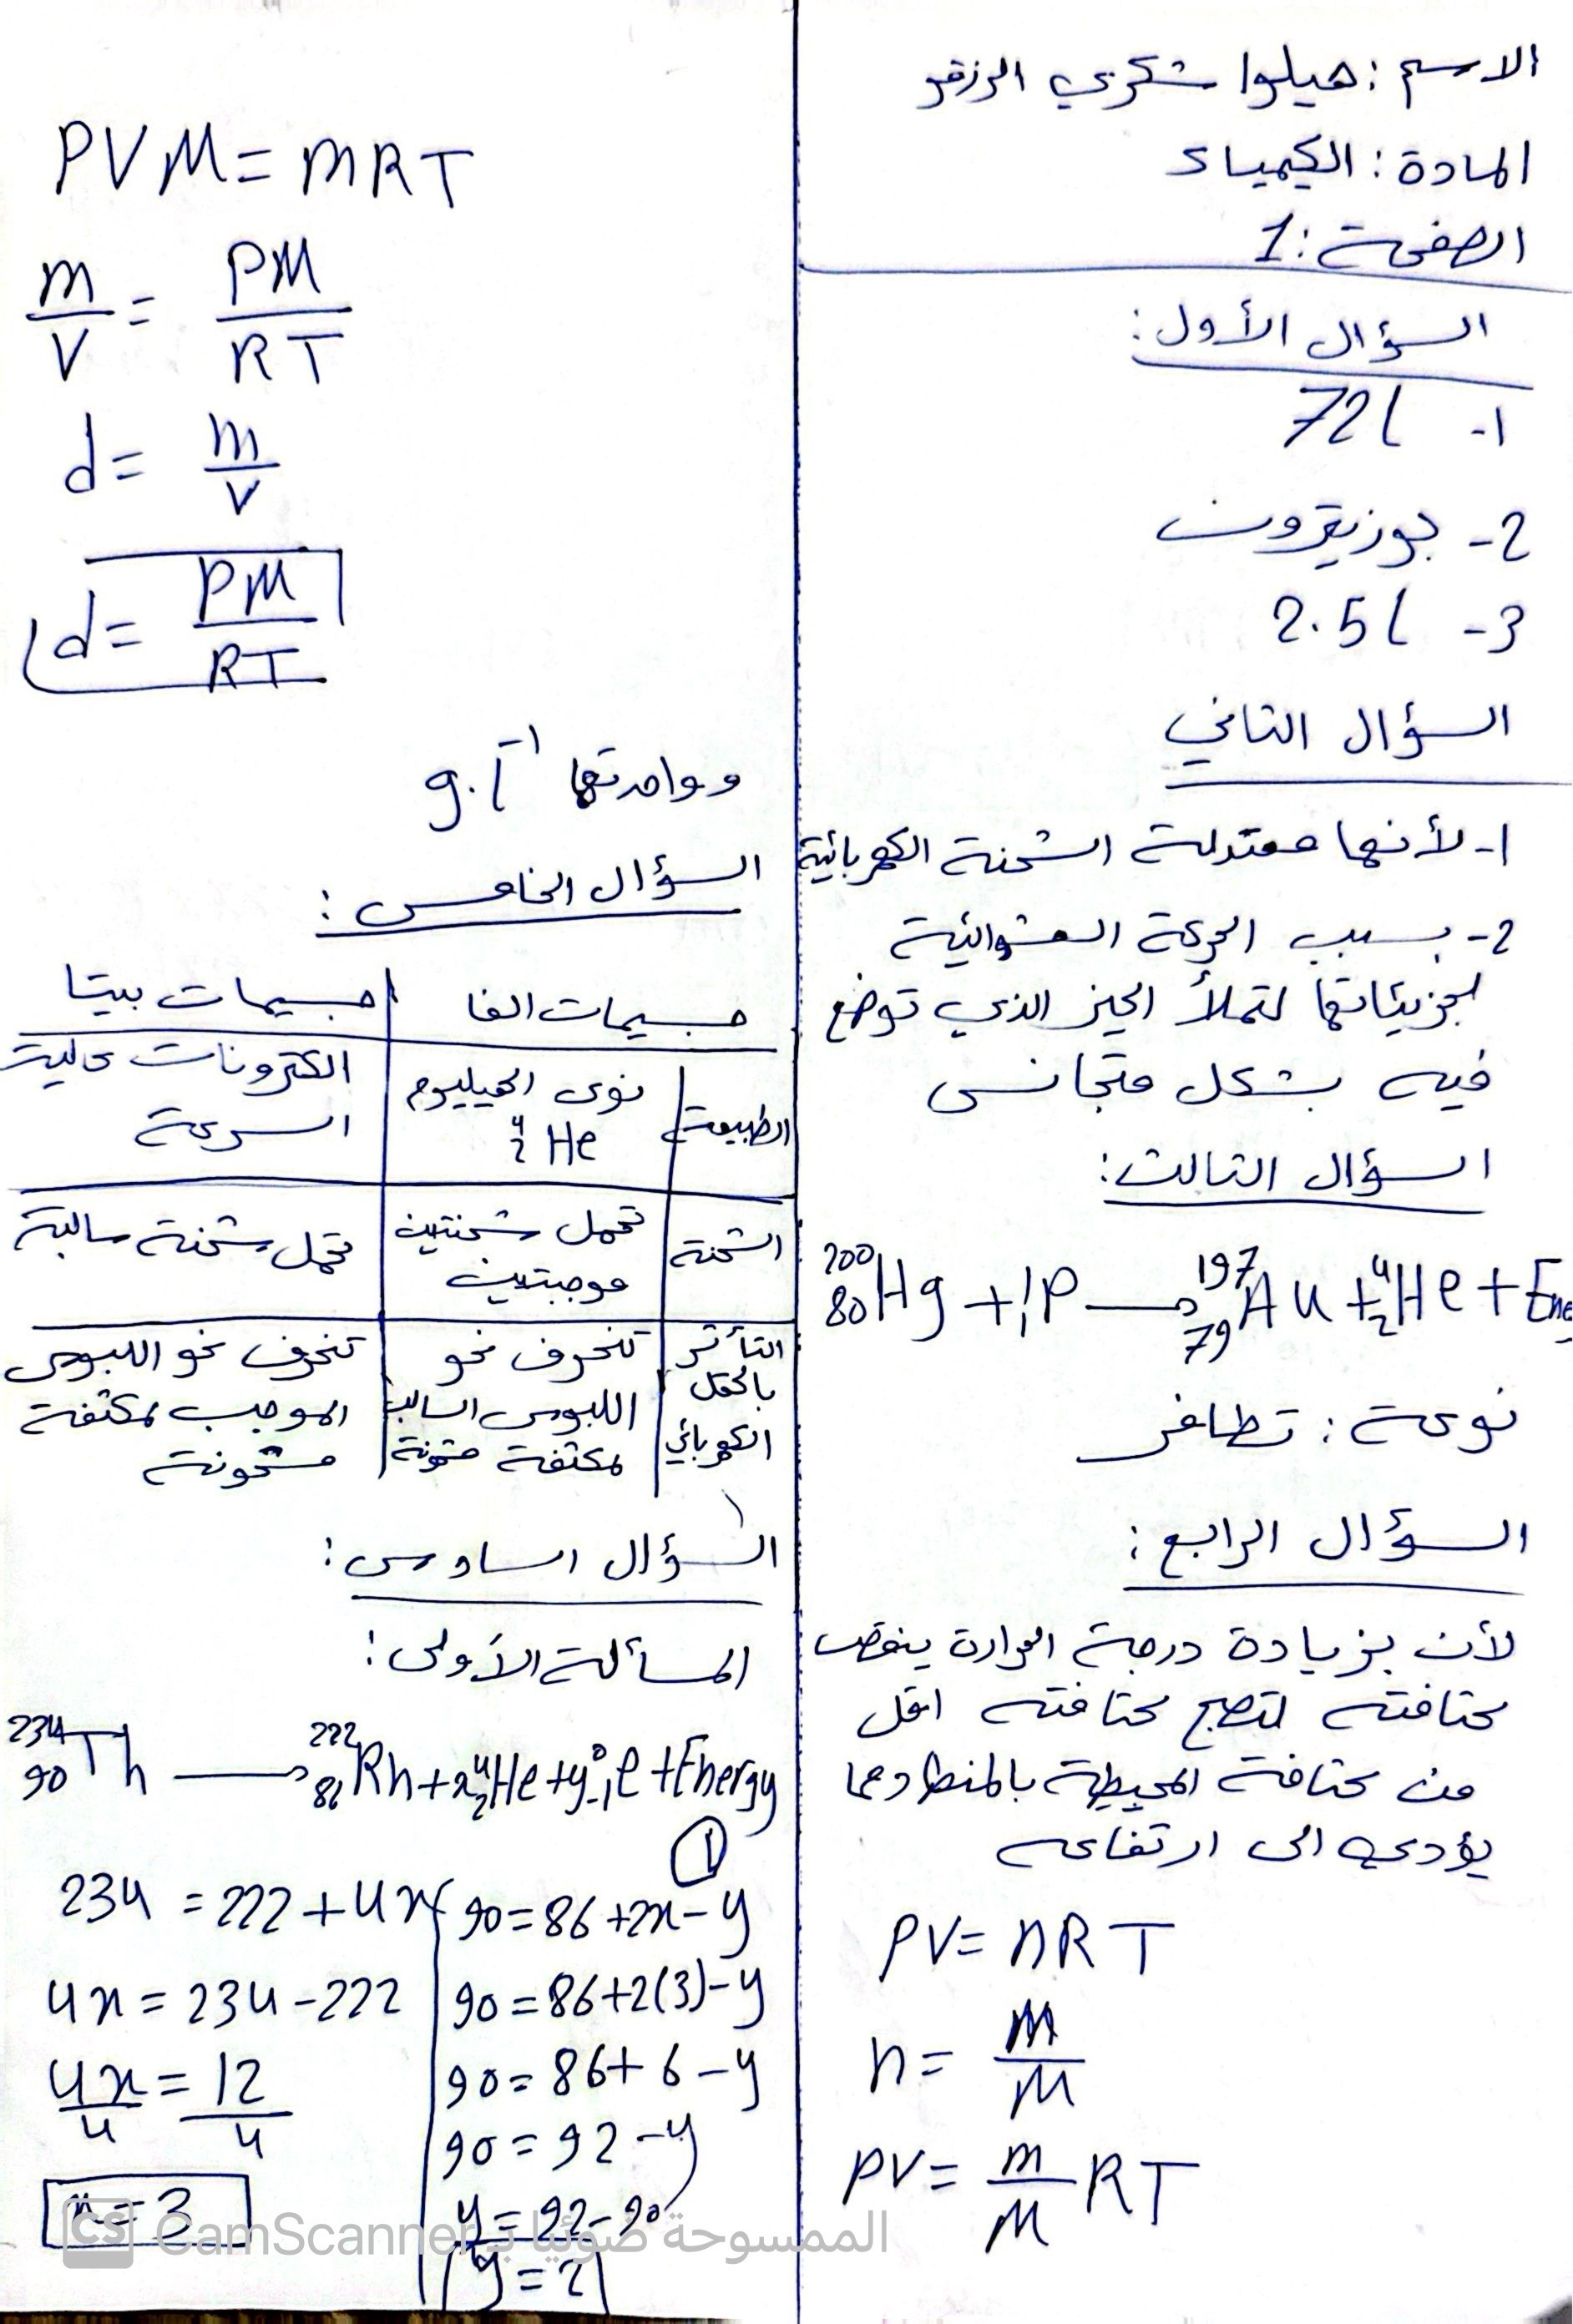 الاسم : هيلوا شكري الرزقو
المادة : الكيمياء
الصفحة : 1
السؤال الأول :
1- 72 l
2- بوزيترون
3- 2.5 l
السؤال الثاني
1- لأنها معتدلة الشحنة الكهربائية
2- بسبب الحركة العشوائية
لجزيئاتها لتملأ الحيز الذي توضع
فيه بشكل متجانس
السؤال الثالث :
²⁰⁰₈₀Hg + ¹₁P → ¹⁹⁷₇₉Au + ⁴₂He + Ene
نوعه : تطافر
السؤال الرابع :
لأن بزيادة درجة الحرارة ينقص
كثافته لتصبح كثافته اقل
من كثافة المحيطة بالمنطاد مما
يؤدي الى ارتفاعه
PV = nRT
n = m/M
PV = m/M RT
PVM = mRT
m/V = PM/RT
d = m/V
d = PM/RT
وواحدتها g.l⁻¹
السؤال الخامس :
جسيمات الفا | جسيمات بيتا
الطبيعة | نوى الهيليوم ⁴₂He | الكترونات عالية السرعة
الشحنة | تحمل شحنتين موجبتين | تحمل شحنة سالبة
التأثر بالحقل الكهربائي | تنحرف نحو اللبوس السالب لمكثفة مشحونة | تنحرف نحو اللبوس الموجب لمكثفة مشحونة
السؤال السادس :
المسألة الأولى :
²³⁴₉₀Th → ²²²₈₆Rn + x⁴₂He + y⁰₋₁e + Energy
①
234 = 222 + 4x
4x = 234 - 222
4x/4 = 12/4
x = 3
90 = 86 + 2x - y
90 = 86 + 2(3) - y
90 = 86 + 6 - y
90 = 92 - y
y = 92 - 90
y = 2
CS CamScanner الممسوحة ضوئيا بـ